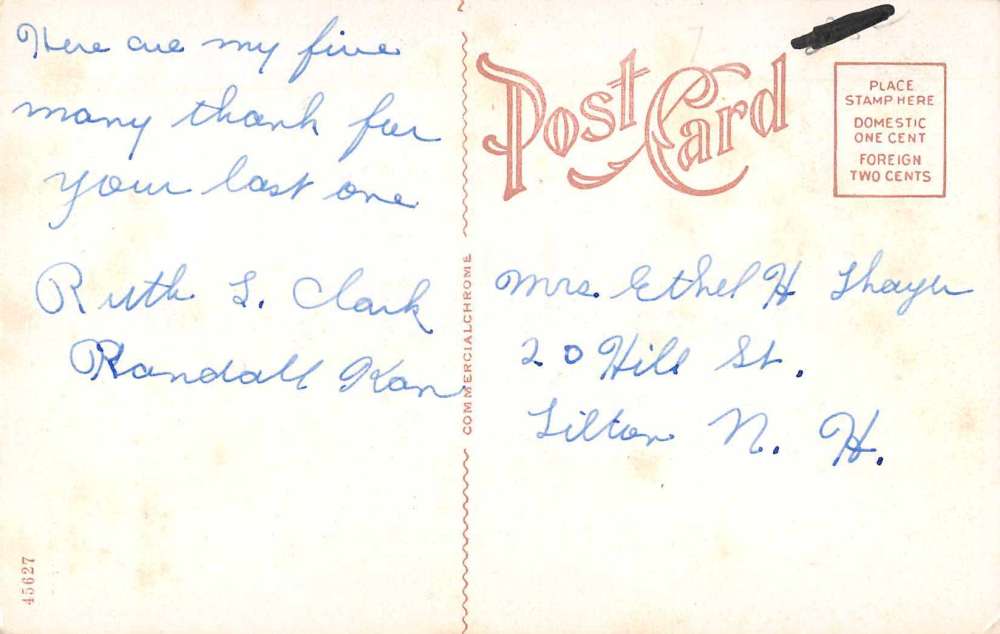 Here are my five
many thank for
your last one
Ruth L. Clark
Randall Kan
COMMERCIALCHROME
45627
Post Card
PLACE
STAMP HERE
DOMESTIC
ONE CENT
FOREIGN
TWO CENTS
Mrs. Ethel H Thayer
20 Hill St.
Tilton N. H.